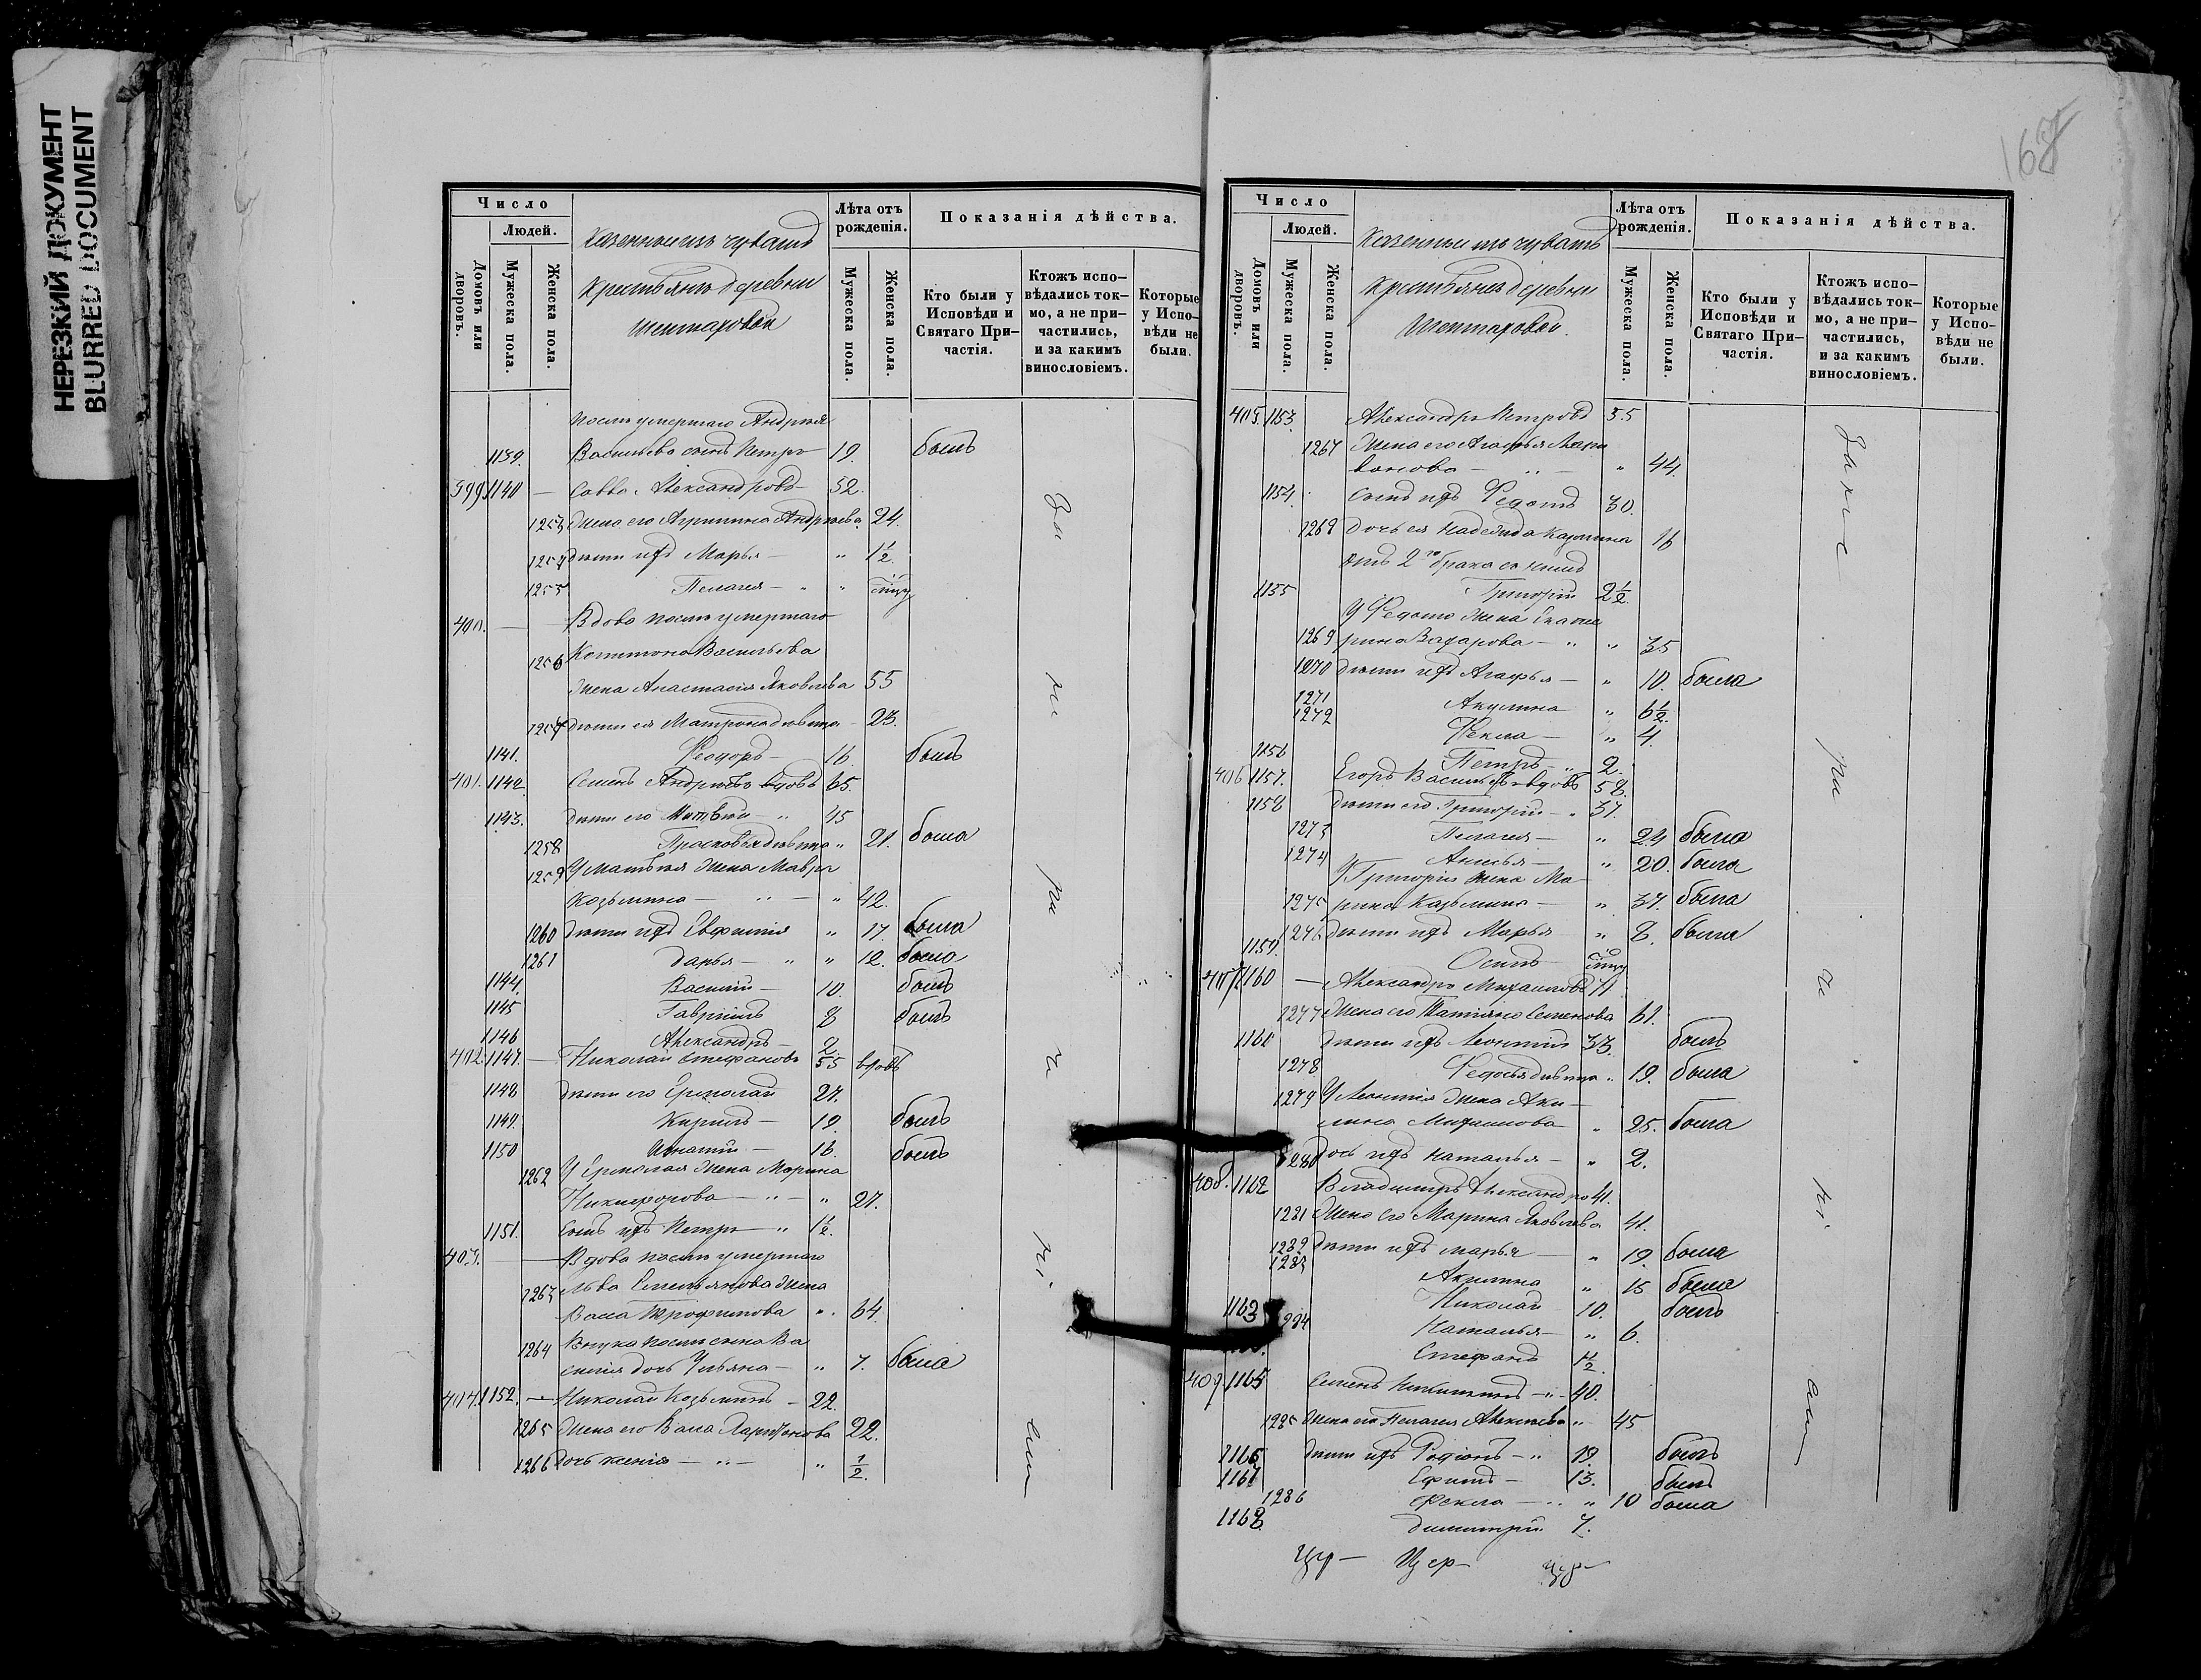 НЕРЕЗКИЙ ДОКУМЕНТ
BLURRED DOCUMENT
Число
Людей.
Домовъ или дворовъ.
Мужеска пола.
Женска пола.
казенныхъ чувашъ
крестьянъ деревни
Лѣта отъ рожденія.
Мужеска пола.
Женска пола.
Показанія дѣйства.
Кто были у Исповѣди и Святаго Причастія.
Ктожъ исповѣдались токмо, а не причастились, и за какимъ винословіемъ.
Которые у Исповѣди не были.
послѣ умершаго Андрея
1139. Васильева сынъ Петръ 19. былъ
399. 1140 — Савва Александровъ 32.
1253 Жена его Агрипина Андреева 24.
1254 дѣти ихъ Марья — " 1½.
1255 Пелагея — " "
400. — Вдова послѣ умершаго
1256 Васильева
Жена Анастасія Яковлева 55
1257 дѣти ея Матрона дѣвица 23.
1141. Феодоръ — 16. былъ
401. 1142. Семенъ Андреевъ вдовъ 65.
1143. дѣти его Матвѣй — " 45
1258 Прасковья дѣвица " 21. была
1259 У Матвѣя жена Мавра
Козьмина — " — " 42.
1260 дѣти ихъ Евфимія " 17. была
1261 Дарья — " " 12. была
1144. Василій — 10. былъ
1145 Гавріилъ 8 былъ
1146 Александръ — 2.
402. 1147. — Николай Стефановъ 55 вдовъ
1148 дѣти его Ермолай 27.
1149. Кирилъ — 19. былъ
1150 Игнатій — 16. былъ
1262 У Ермолая жена Марина
Никифорова — " — " 27.
1151. Сынъ ихъ Петръ — " 1½.
403. — Вдова послѣ умершаго
1263 Льва Емельянова жена
Васса Трофимова " 64.
1264 Внука послѣ сына Ва
силія дочь Ульяна — " 7. была
404. 1152. — Николай Козьминъ — 22.
1265 Жена его Васса Харитонова 22.
1266 дочь Ксенія — " — " ½.
168
Число
Людей.
Домовъ или дворовъ.
Мужеска пола.
Женска пола.
казенныхъ чувашъ
крестьянъ деревни
Лѣта отъ рожденія.
Мужеска пола.
Женска пола.
Показанія дѣйства.
Кто были у Исповѣди и Святаго Причастія.
Ктожъ исповѣдались токмо, а не причастились, и за какимъ винословіемъ.
Которые у Исповѣди не были.
405. 1153. Александръ Петровъ 55
1267 Жена его Агафья
— " — " 44.
1154. Сынъ ихъ Федотъ 30.
1268 дочь ея Надежда 16
отъ 2го брака съ нимъ
1155 Григорій 2½.
У Федота жена Екате
1269 рина Захарова — " " 35
1270 дѣти ихъ Агафья — " 10. была
1271 Акулина " 6½.
1272 Фекла — " 4.
1156 Петръ — " 2.
406 1157. Егоръ Васильевъ вдовъ 58.
1158 дѣти его Григорій — " 37.
1273 Пелагея — " 24 была
1274 Анисья — " 20. была
У Григорія жена Ма
1275 рина Казьмина — " 37. была
1276 дѣти ихъ Марья " 8. была
1159. Осипъ
407 1160 — Александръ Михайловъ 71
1277 Жена его Татіяна Семенова 61.
1160 дѣти ихъ Леонтій 33. былъ
1278 Федосья дѣвица " 19. была
1279 У Леонтія жена Аку
лина Михайлова " 25. была
1280 дочь ихъ Наталья — " 2.
408. 1162 Владимиръ Александро 41.
1281 Жена его Марина Яковлева 41.
1282 дѣти ихъ Марья — " 19. была
1283 Акилина " 15 была
1163 Николай 10. былъ
1284 Наталья — " 6.
Стефанъ 1½
409 1165 Семенъ — " — 40.
1285 Жена его Пелагея Алексѣева " 45
1166 дѣти ихъ Родіонъ — " 19. былъ
1167 Ефимъ — 13. былъ
1286 Фекла — " " 10 была
1168 Димитрій 7.